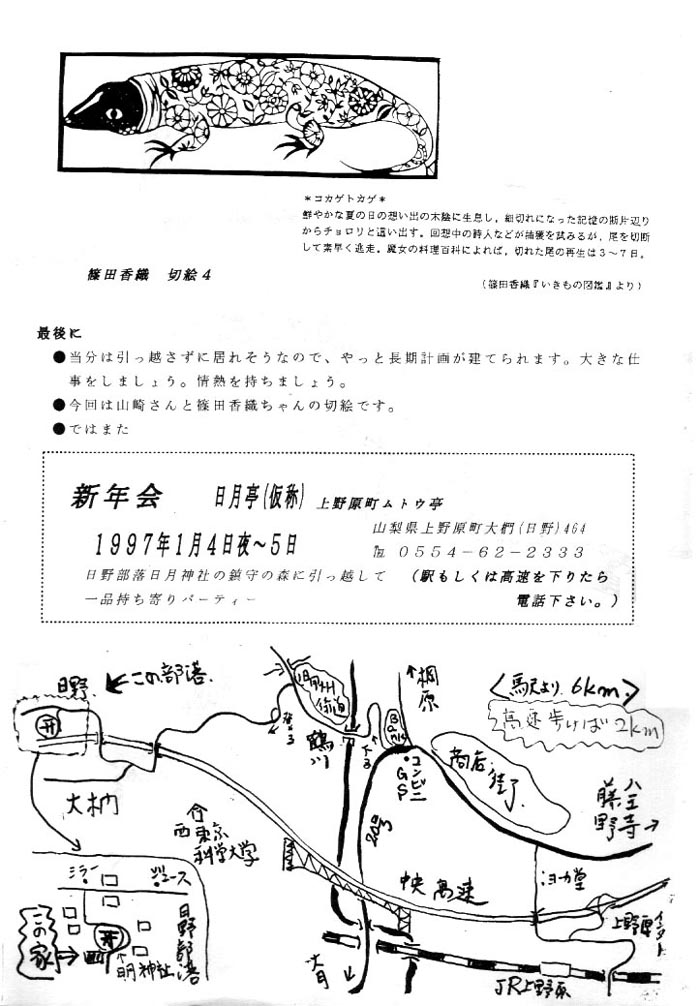 *コカゲトカゲ*
鮮やかな夏の日の想い出の木陰に生息し，細切れになった記憶の断片辺り
からチョロリと這い出す。回想中の詩人などが捕獲を試みるが，尾を切断
して素早く逃走。魔女の料理百科によれば，切れた尾の再生は３～７日。
篠田香織　切絵４
（篠田香織『いきもの図鑑』より）
最後に
●当分は引っ越さずに居れそうなので、やっと長期計画が建てられます。大きな仕
事をしましょう。情熱を持ちましょう。
●今回は山崎さんと篠田香織ちゃんの切絵です。
●ではまた
新年会　日月亭(仮称)　上野原町ムトウ亭
山梨県上野原町大椚(日野)464
1997年1月4日夜～5日
℡ ０５５４－６２－２３３３
日野部落日月神社の鎮守の森に引っ越して　（駅もしくは高速を下りたら
一品持ち寄りパーティー　電話下さい。）
日野
この部落
旧甲州街道
↑桐原
<駅より 6km>
高速歩けば2km
鶴川
Bank
コンビニ
GS
商店街
八王子
藤野
大椚
西東京
科学大学
20号
中央高速
上野原
大月
JR上野原
ミラー
ジュース
日野部落
この家
明神社